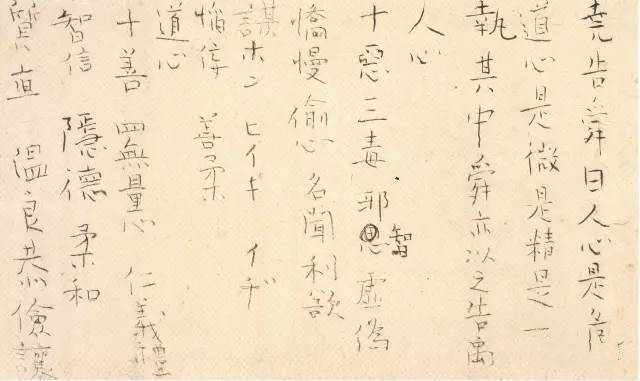 堯告舜曰人心是危
道心是微是精是一
執其中舜亦以之告禹
人心
十惡三毒邪思智虛偽
憍慢偸心名聞利欲
謀ホン ヒイキ イヂ
佞 善柔
道心
十善 四無量心 仁義禮
智信 隱德 柔和
質直 溫良恭儉讓